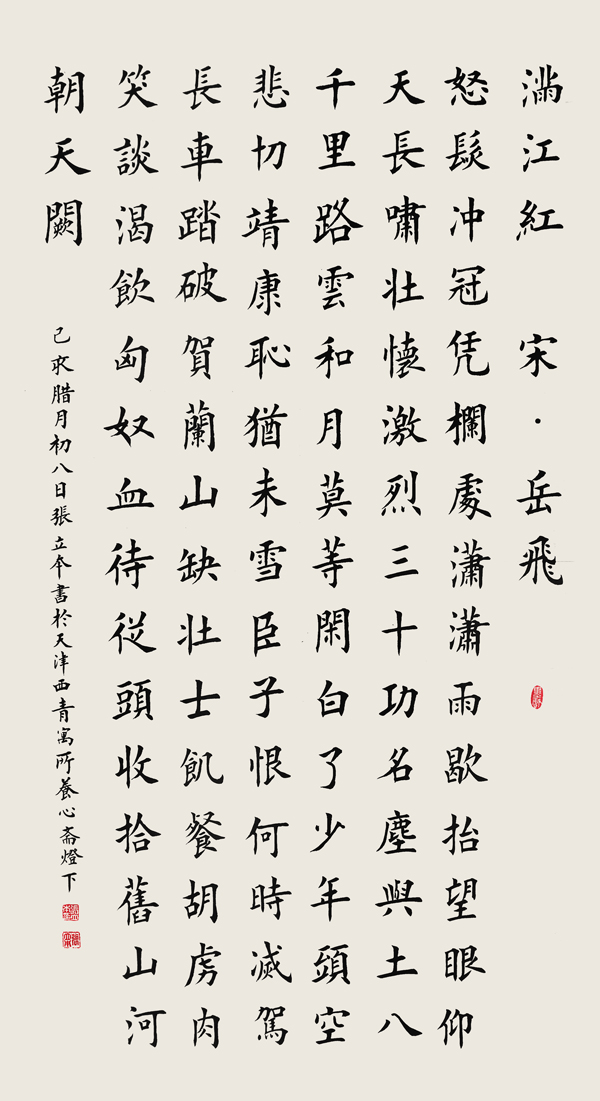 滿江紅 宋·岳飛
怒髮冲冠凭欄處瀟瀟雨歇抬望眼仰
天長嘯壯懷激烈三十功名塵與土八
千里路雲和月莫等閑白了少年頭空
悲切靖康恥猶未雪臣子恨何時滅駕
長車踏破賀蘭山缺壯士飢餐胡虜肉
笑談渴飲匈奴血待従頭收拾舊山河
朝天闕
己亥腊月初八日張立夲書於天津西青寓所養心斋燈下